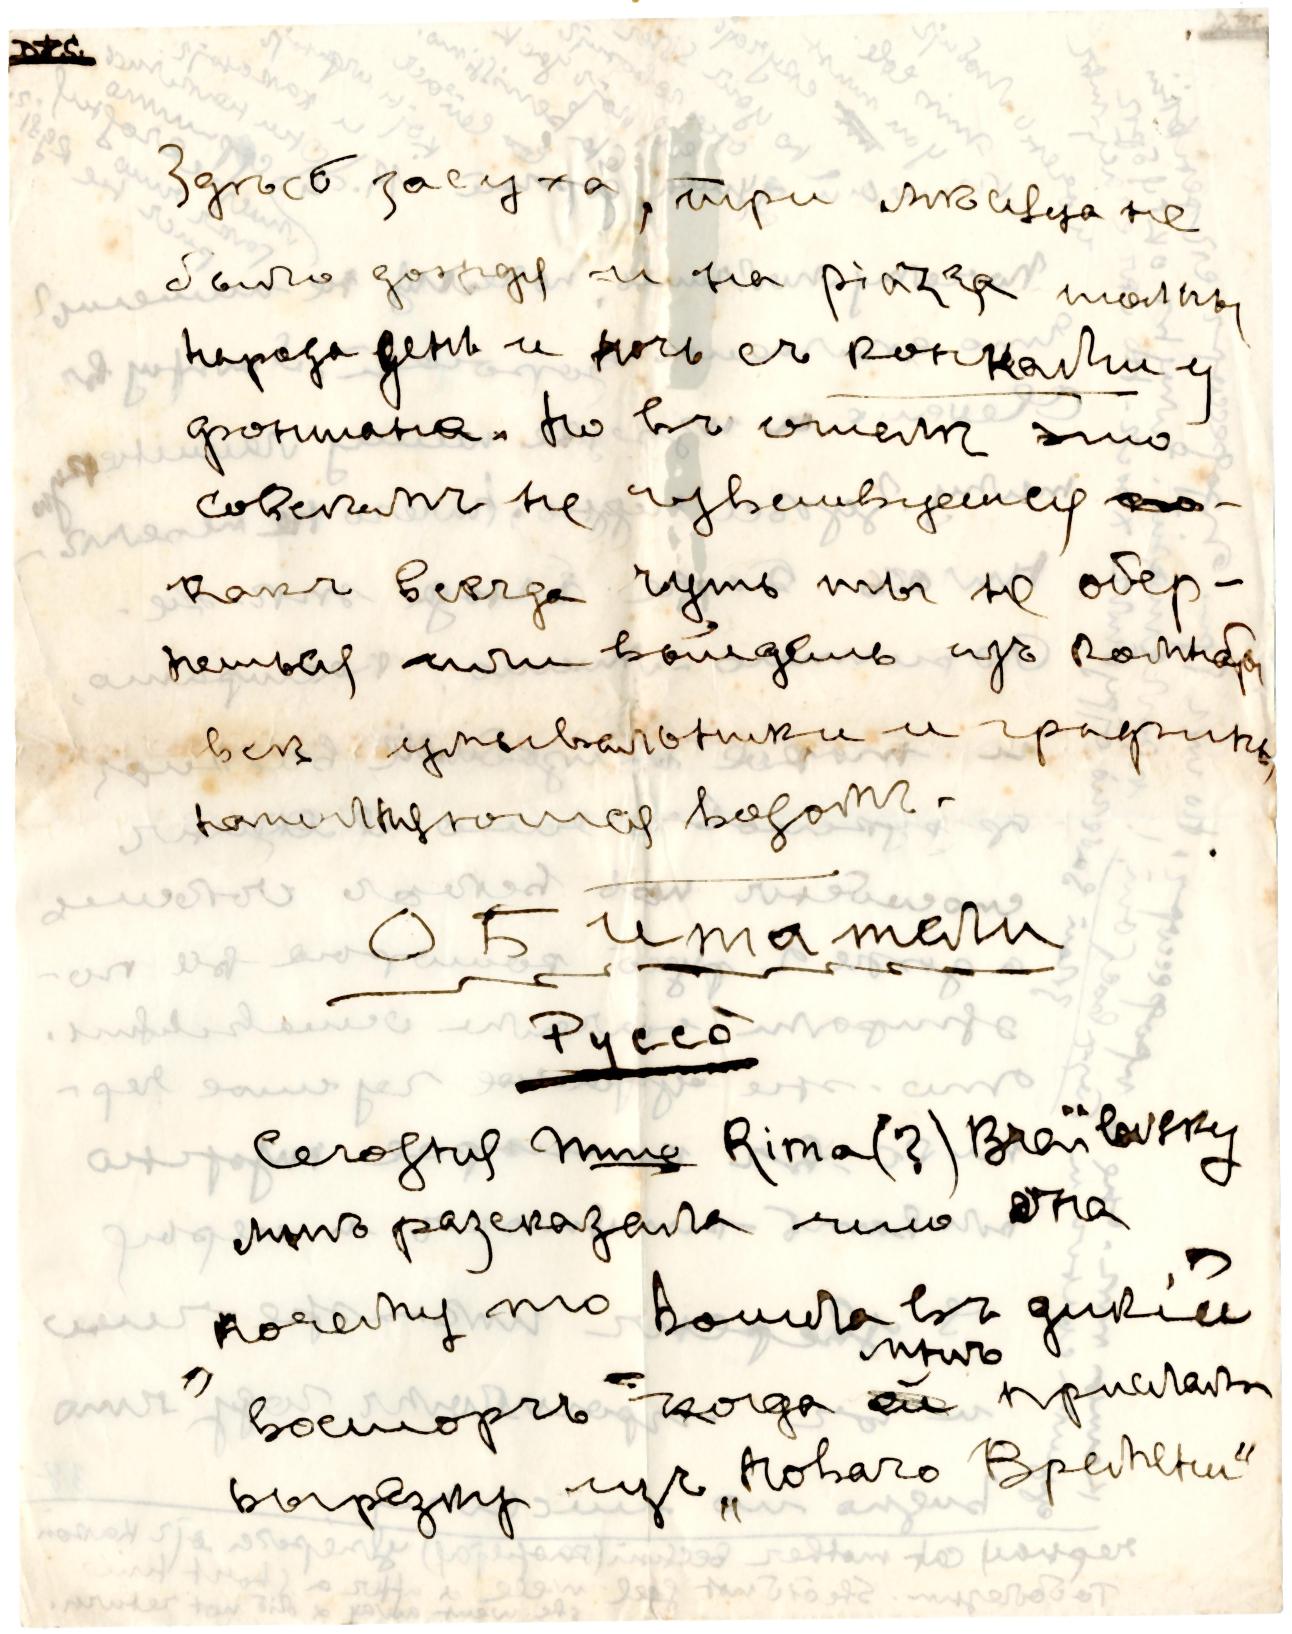 Здѣсь засуха, три мѣсяца не
было дождя и на piazza толпы
народа день и ночь съ конками у
фонтана. Но въ отелѣ это
совсѣмъ не чувствуется
какъ всегда чуть ты не обер-
нешься или выйдешь изъ комнаты
всѣ умывальники и графины,
наполняются водой.-
Обитатели
Руссо
Сегодня Mme Rima(?) Braïlovsky
мнѣ разсказала что она
почему то вошла въ "дикій
восторгъ" когда мнѣ прислали
вырѣзку изъ „Новаго Времени“